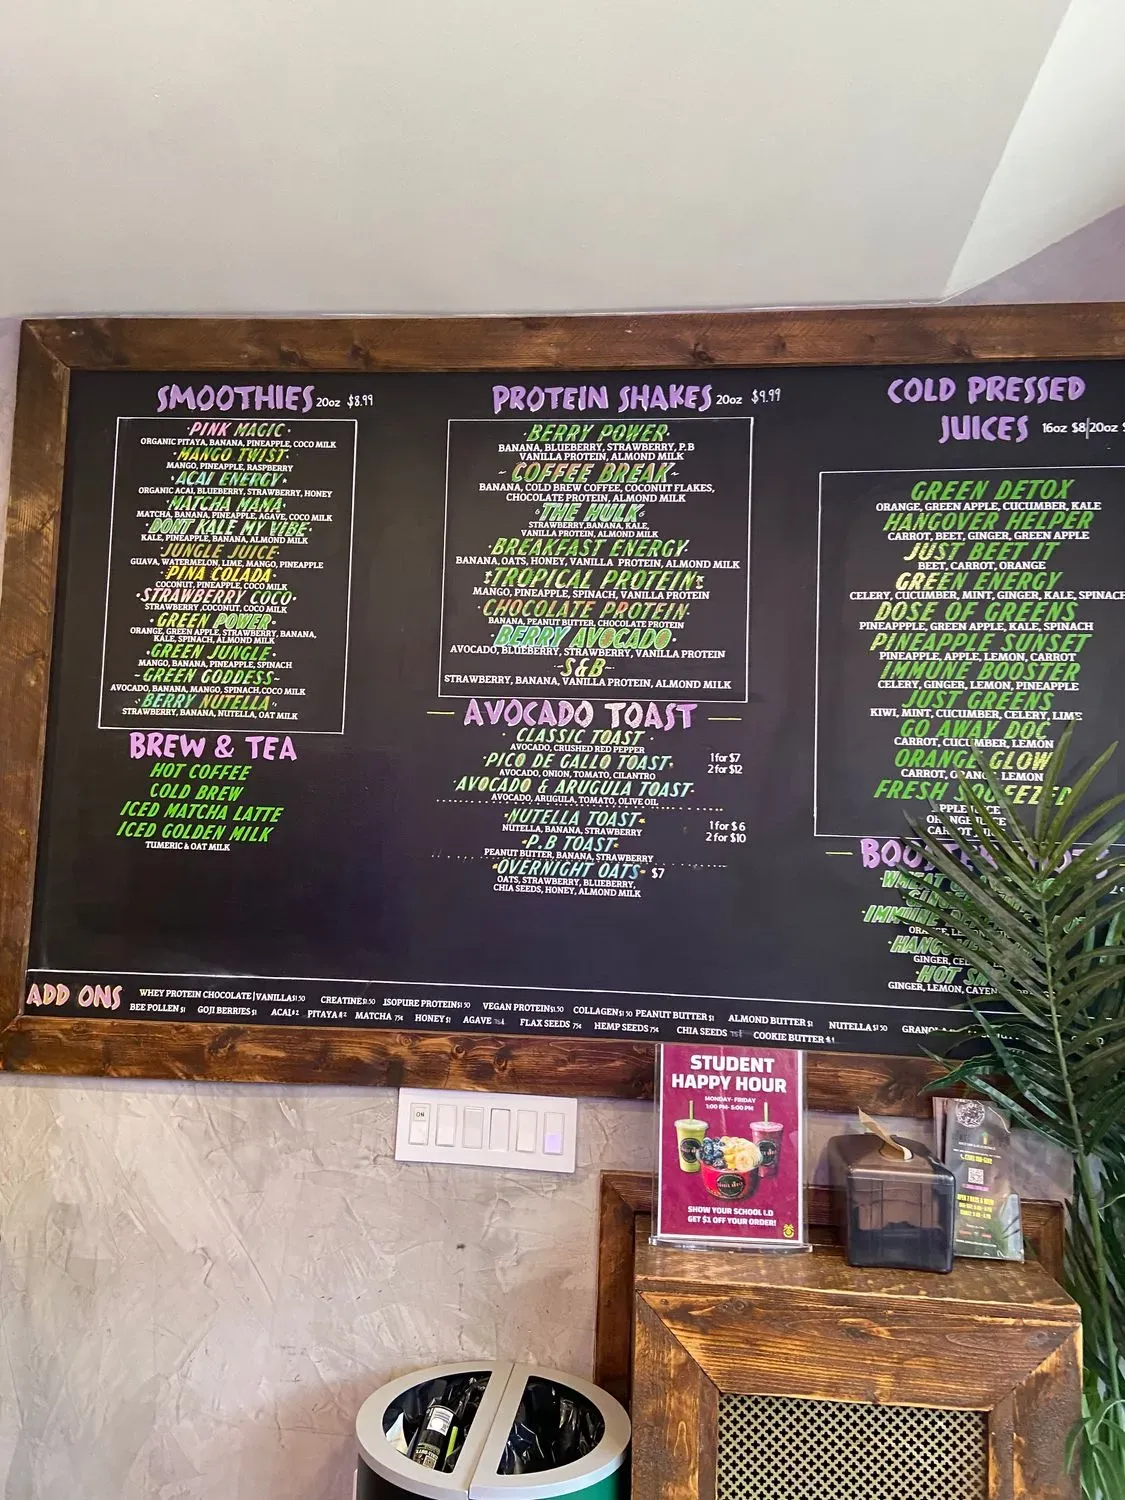 SMOOTHIES 20oz $8.99
PINK MAGIC
ORGANIC PITAYA, BANANA, PINEAPPLE, COCO MILK
MANGO TWIST
MANGO, PINEAPPLE, RASPBERRY
ACAI ENERGY
ORGANIC ACAI, BLUEBERRY, STRAWBERRY, HONEY
MATCHA MAMA
MATCHA, BANANA, PINEAPPLE, AGAVE, COCO MILK
DONT KALE MY VIBE
KALE, PINEAPPLE, BANANA, ALMOND MILK
JUNGLE JUICE
GUAVA, WATERMELON, LIME, MANGO, PINEAPPLE
PINA COLADA
COCONUT, PINEAPPLE, COCO MILK
STRAWBERRY COCO
STRAWBERRY ,COCONUT, COCO MILK
GREEN POWER
ORANGE, GREEN APPLE, STRAWBERRY, BANANA,
KALE, SPINACH, ALMOND MILK
GREEN JUNGLE
MANGO, BANANA, PINEAPPLE, SPINACH
GREEN GODDESS
AVOCADO, BANANA, MANGO, SPINACH, COCO MILK
BERRY NUTELLA
STRAWBERRY, BANANA, NUTELLA, OAT MILK
BREW & TEA
HOT COFFEE
COLD BREW
ICED MATCHA LATTE
ICED GOLDEN MILK
TUMERIC & OAT MILK
PROTEIN SHAKES 20oz $9.99
BERRY POWER
BANANA, BLUEBERRY, STRAWBERRY, P.B
VANILLA PROTEIN, ALMOND MILK
COFFEE BREAK
BANANA, COLD BREW COFFEE, COCONUT FLAKES,
CHOCOLATE PROTEIN, ALMOND MILK
THE HULK
STRAWBERRY,BANANA, KALE,
VANILLA PROTEIN, ALMOND MILK
BREAKFAST ENERGY
BANANA,OATS, HONEY, VANILLA PROTEIN, ALMOND MILK
TROPICAL PROTEIN
MANGO, PINEAPPLE, SPINACH, VANILLA PROTEIN
CHOCOLATE PROTEIN
BANANA, PEANUT BUTTER, CHOCOLATE PROTEIN
BERRY AVOCADO
AVOCADO, BLUEBERRY, STRAWBERRY, VANILLA PROTEIN
S&B
STRAWBERRY, BANANA, VANILLA PROTEIN, ALMOND MILK
AVOCADO TOAST
CLASSIC TOAST
AVOCADO, CRUSHED RED PEPPER
PICO DE GALLO TOAST
AVOCADO, ONION, TOMATO, CILANTRO
AVOCADO & ARUGULA TOAST
AVOCADO, ARUGULA, TOMATO, OLIVE OIL
1 for $7
2 for $12
NUTELLA TOAST
NUTELLA, BANANA, STRAWBERRY
P.B TOAST
PEANUT BUTTER, BANANA, STRAWBERRY
1 for $6
2 for $10
OVERNIGHT OATS $7
OATS, STRAWBERRY, BLUEBERRY,
CHIA SEEDS, HONEY, ALMOND MILK
COLD PRESSED
JUICES 16oz $8|20oz
GREEN DETOX
ORANGE, GREEN APPLE, CUCUMBER, KALE
HANGOVER HELPER
CARROT, BEET, GINGER, GREEN APPLE
JUST BEET IT
BEET, CARROT, ORANGE
GREEN ENERGY
CELERY, CUCUMBER, MINT, GINGER, KALE, SPINACH
DOSE OF GREENS
PINEAPPPLE, GREEN APPLE, KALE, SPINACH
PINEAPPLE SUNSET
PINEAPPLE, APPLE, LEMON, CARROT
IMMUNE BOOSTER
CELERY, GINGER, LEMON, PINEAPPLE
JUST GREENS
KIWI, MINT, CUCUMBER, CELERY, LIME
GO AWAY DOC
CARROT, CUCUMBER, LEMON
ORANGE GLOW
CARROT, ORANGE, LEMON
FRESH SQUEEZED
APPLE JUICE
ORANGE JUICE
CARROT JUICE
IMMUNE
GINGER,
HOT
GINGER, LEMON,
ADD ONS
WHEY PROTEIN CHOCOLATE|VANILLA $1.50 CREATINE $1.50 ISOPURE PROTEIN $1.50 VEGAN PROTEIN $1.50 COLLAGEN $1.50 PEANUT BUTTER $1 ALMOND BUTTER $1 NUTELLA $1.50
BEE POLLEN $1 GOJI BERRIES $1 ACAI $2 PITAYA $2 MATCHA 75¢ HONEY $1 AGAVE 75¢ FLAX SEEDS 75¢ HEMP SEEDS 75¢ CHIA SEEDS 75¢ COOKIE BUTTER $1
ON
STUDENT
HAPPY HOUR
MONDAY- FRIDAY
1:00 PM- 5:00 PM
SHOW YOUR SCHOOL I.D
GET $1 OFF YOUR ORDER!